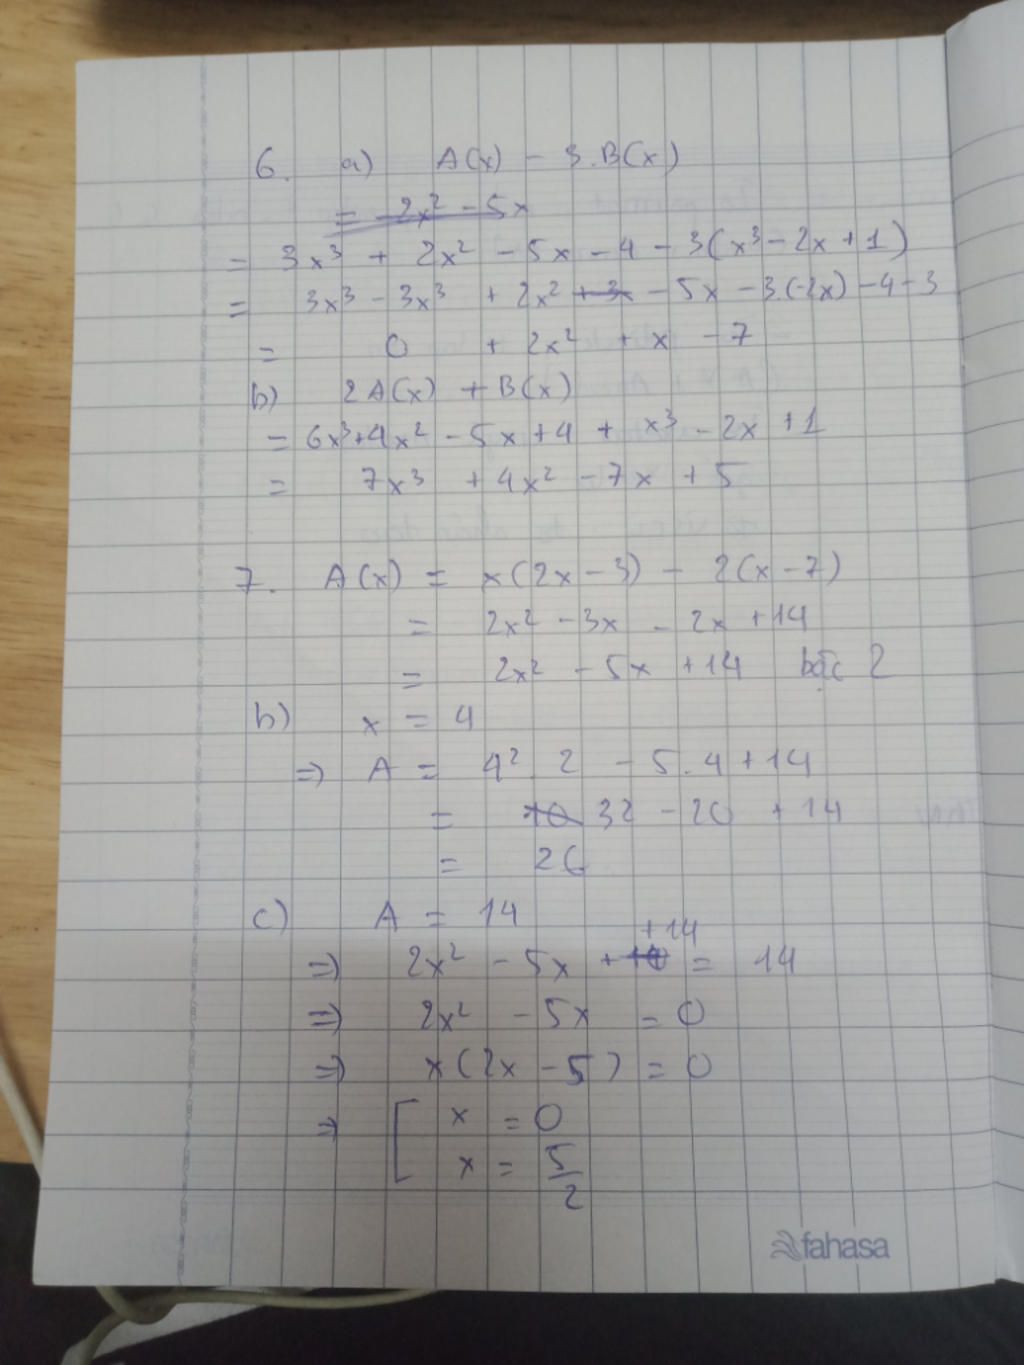 6. a) A(x) - 3.B(x)
= 2x² - 5x
= 3x³ + 2x² - 5x - 4 - 3(x³ - 2x + 1)
= 3x³ - 3x³ + 2x² + 3x - 5x - 3.(-2x) - 4 - 3
= 0 + 2x² + x - 7
b) 2A(x) + B(x)
= 6x³ + 4x² - 5x + 4 + x³ - 2x + 1
= 7x³ + 4x² - 7x + 5
7. A(x) = x(2x - 3) - 2(x - 7)
= 2x² - 3x - 2x + 14
= 2x² - 5x + 14 bậc 2
b) x = 4
=> A = 4². 2 - 5.4 + 14
= 32 - 20 + 14
= 26
c) A = 14
+14
=> 2x² - 5x + = 14
=> 2x² - 5x = 0
=> x(2x - 5) = 0
=> [ x = 0
x = 5/2
fahasa